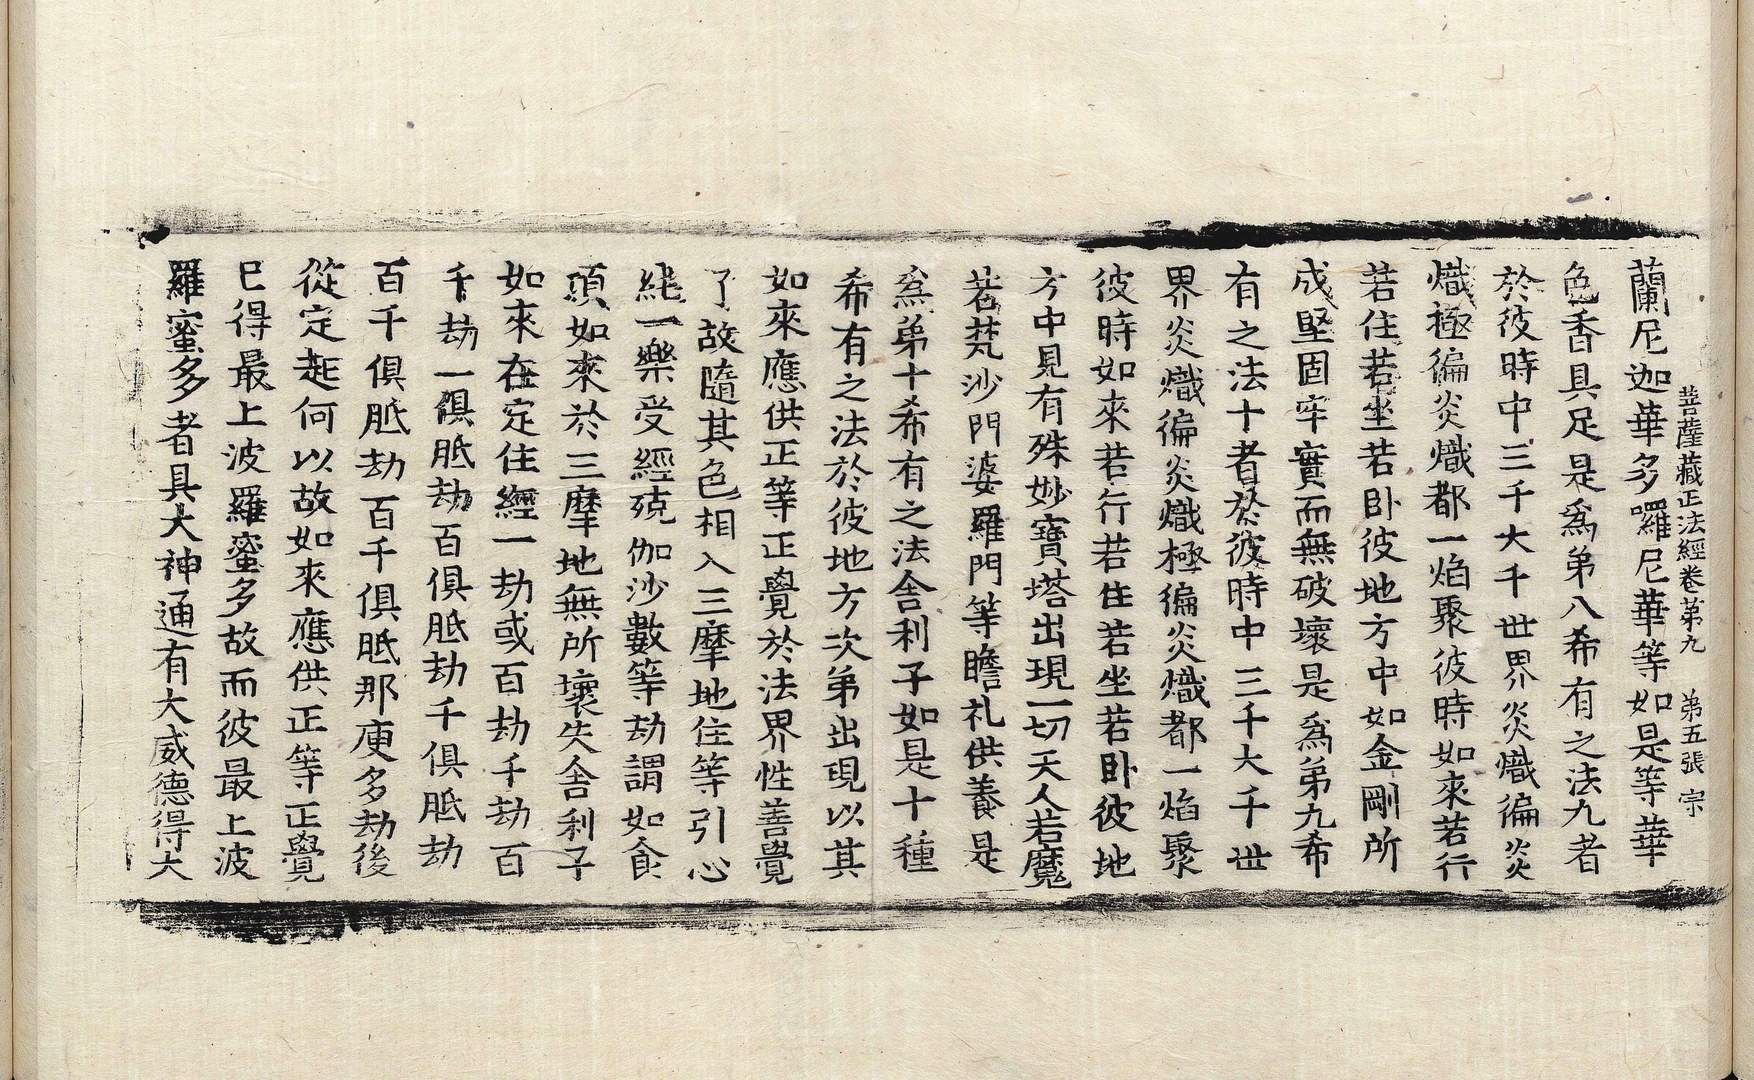 菩薩藏正法經卷第九　第五張　宗
蘭尼迦華多囉尼華等如是等華
色香具足是爲第八希有之法九者
於彼時中三千大千世界炎熾徧炎
熾極徧炎熾都一焰聚彼時如來若行
若住若坐若卧彼地方中如金剛所
成堅固牢實而無破壞是爲第九希
有之法十者於彼時中三千大千世
界炎熾徧炎熾極徧炎熾都一焰聚
彼時如來若行若住若坐若卧彼地
方中見有殊妙寶塔出現一切天人若魔
若梵沙門婆羅門等瞻礼供養是
爲第十希有之法舍利子如是十種
希有之法於彼地方次第出現以其
如來應供正等正覺於法界性善覺
了故隨其色相入三摩地住等引心
継一樂受經殑伽沙數等劫謂如食
頃如來於三摩地無所壞失舍利子
如來在定住經一劫或百劫千劫百
千劫一俱胝劫百俱胝劫千俱胝劫
百千俱胝劫百千俱胝那庾多劫後
從定起何以故如來應供正等正覺
已得最上波羅蜜多故而彼最上波
羅蜜多者具大神通有大威德得大